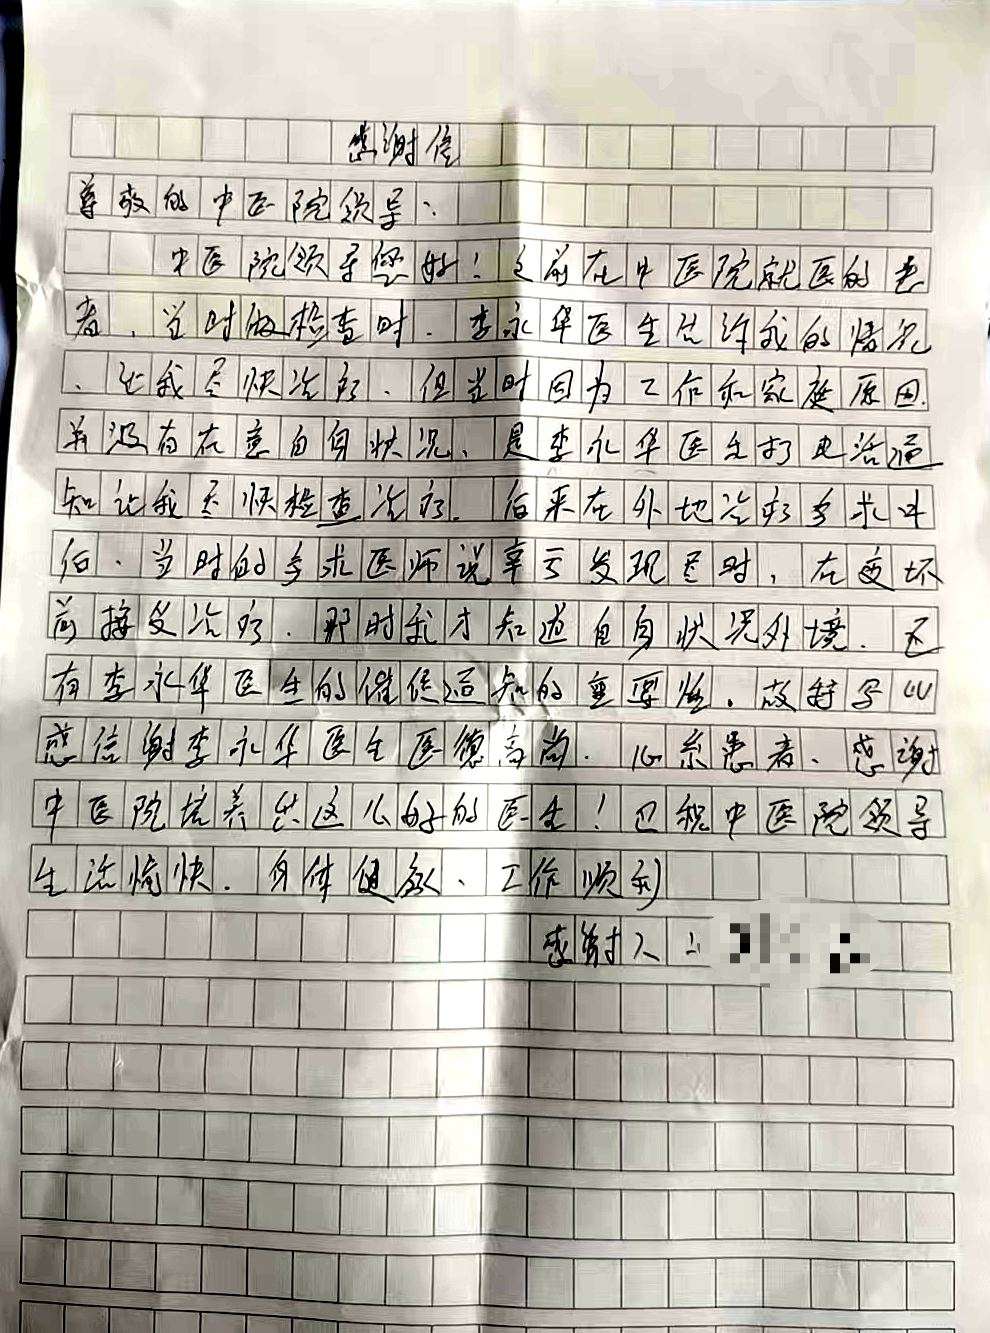 感谢信
尊敬的中医院领导：
中医院领导您好！之前在中医院就医的患
者，当时做检查时．李永华医生告诉我的情况
、让我尽快治疗、但当时因为工作和家庭原因.
并没有在意自身状况、是李永华医生打电话通
知让我尽快检查治疗. 后来在外地治疗手术中
后．当时的手术医师说幸亏发现及时，在变坏
前接受治疗．那时我才知道自身状况外境．还
有李永华医生的催促通知的重要性．故特写以
感信谢李永华医生医德高尚．心系患者、感谢
中医院培养出这么好的医生！已祝中医院领导
生活愉快．身体健康、工作顺利
感谢人：